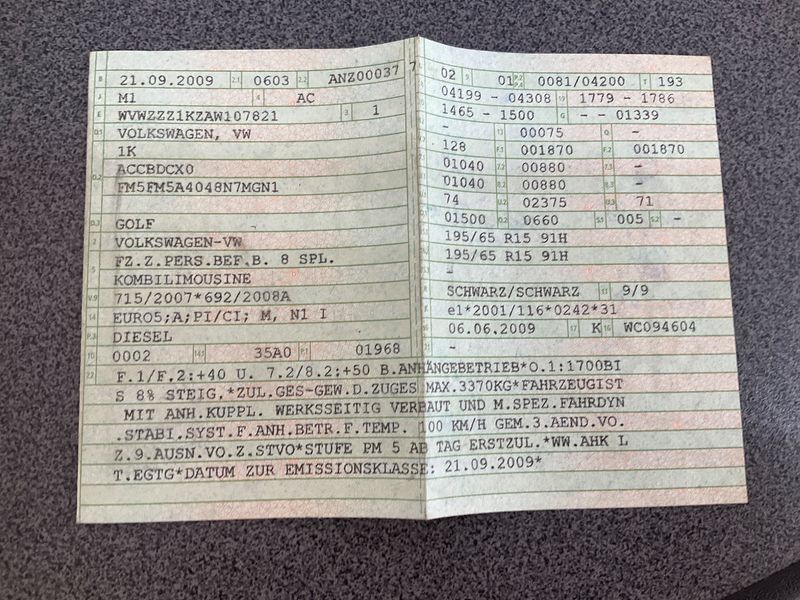 B 21.09.2009 2.1 0603 2.2 ANZ00037 7
J M1 4 AC
E WVWZZZ1KZAW107821 3 1
D.1 VOLKSWAGEN, VW
1K
D.2 ACCBDCX0
FM5FM5A4048N7MGN1
D.3 GOLF
2 VOLKSWAGEN-VW
5 FZ.Z.PERS.BEF.B. 8 SPL.
KOMBILIMOUSINE
V.9 715/2007*692/2008A
14 EURO5;A;PI/CI; M, N1 I
P.3 DIESEL
10 0002 14.1 35A0 P.1 01968
22 F.1/F.2:+40 U. 7.2/8.2:+50 B.ANHÄNGEBETRIEB*O.1:1700BI
S 8% STEIG.*ZUL.GES-GEW.D.ZUGES MAX.3370KG*FAHRZEUGIST
MIT ANH.KUPPL. WERKSSEITIG VERBAUT UND M.SPEZ.FAHRDYN
.STABI.SYST.F.ANH.BETR.F.TEMP. 100 KM/H GEM.3.AEND.VO.
Z.9.AUSN.VO.Z.STVO*STUFE PM 5 AB TAG ERSTZUL.*WW.AHK L
T.EGTG*DATUM ZUR EMISSIONSKLASSE: 21.09.2009*
02 9 01 P.2 P.4 0081/04200 T 193
04199 - 04308 19 1779 - 1786
1465 - 1500 G - - 01339
- 13 00075 Q -
128 F.1 001870 F.2 001870
01040 7.2 00880 7.3 -
01040 8.2 00880 8.3 -
74 U.2 02375 U.3 71
01500 O.2 0660 S.1 005 S.2 -
195/65 R15 91H
195/65 R15 91H
-
R SCHWARZ/SCHWARZ 11 9/9
K e1*2001/116*0242*31
6 06.06.2009 17 K 16 WC094604
21 -